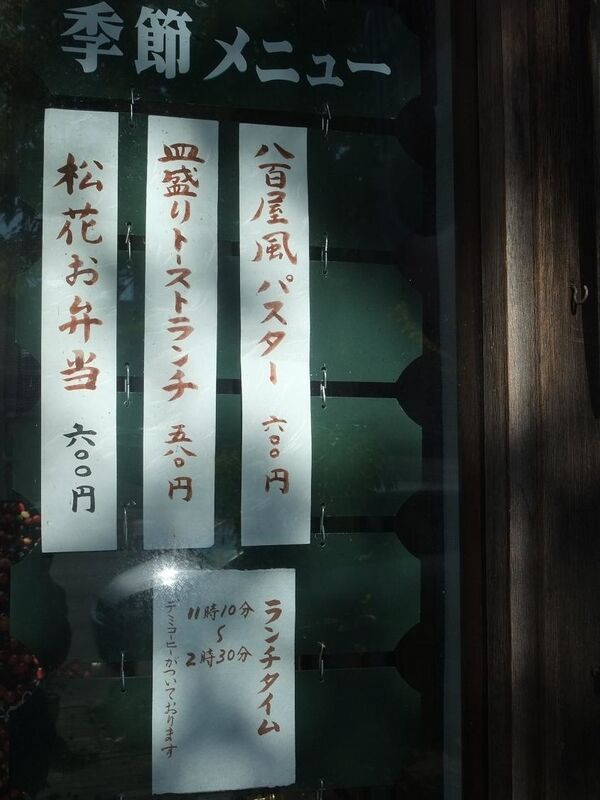 季節メニュー
八百屋風パスター 六〇〇円
皿盛りトーストランチ 五八〇円
松花お弁当 六〇〇円
ランチタイム
11時10分
〜
2時30分
デミコーヒーがついております